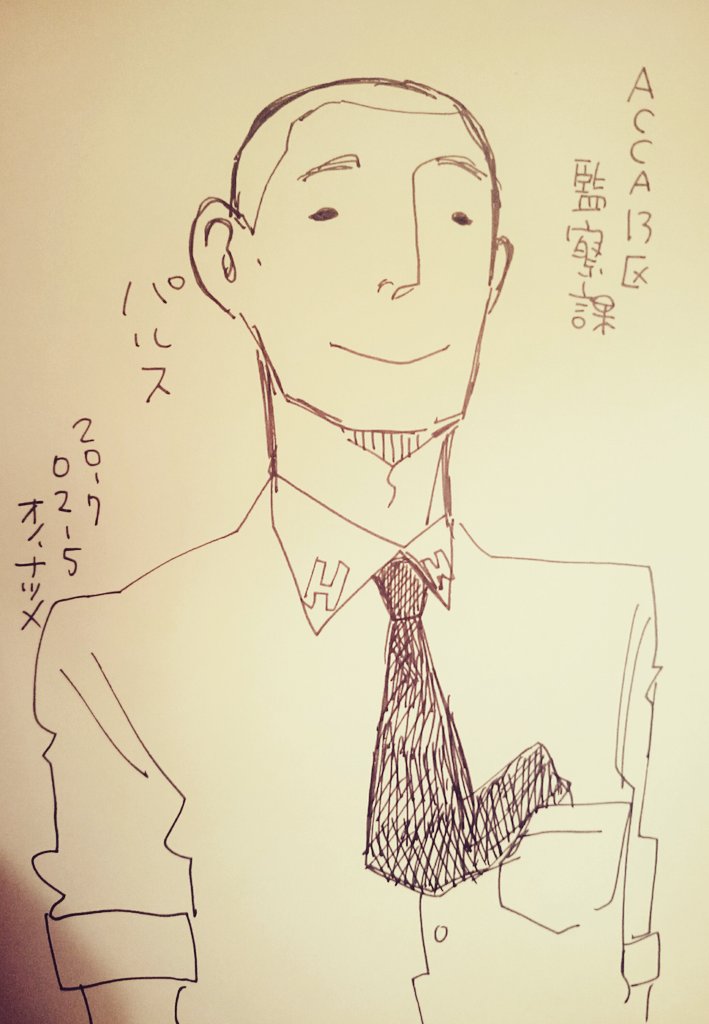 ACCA13区
監察課
パルス
2017
0215
オノ・ナツメ
H
H